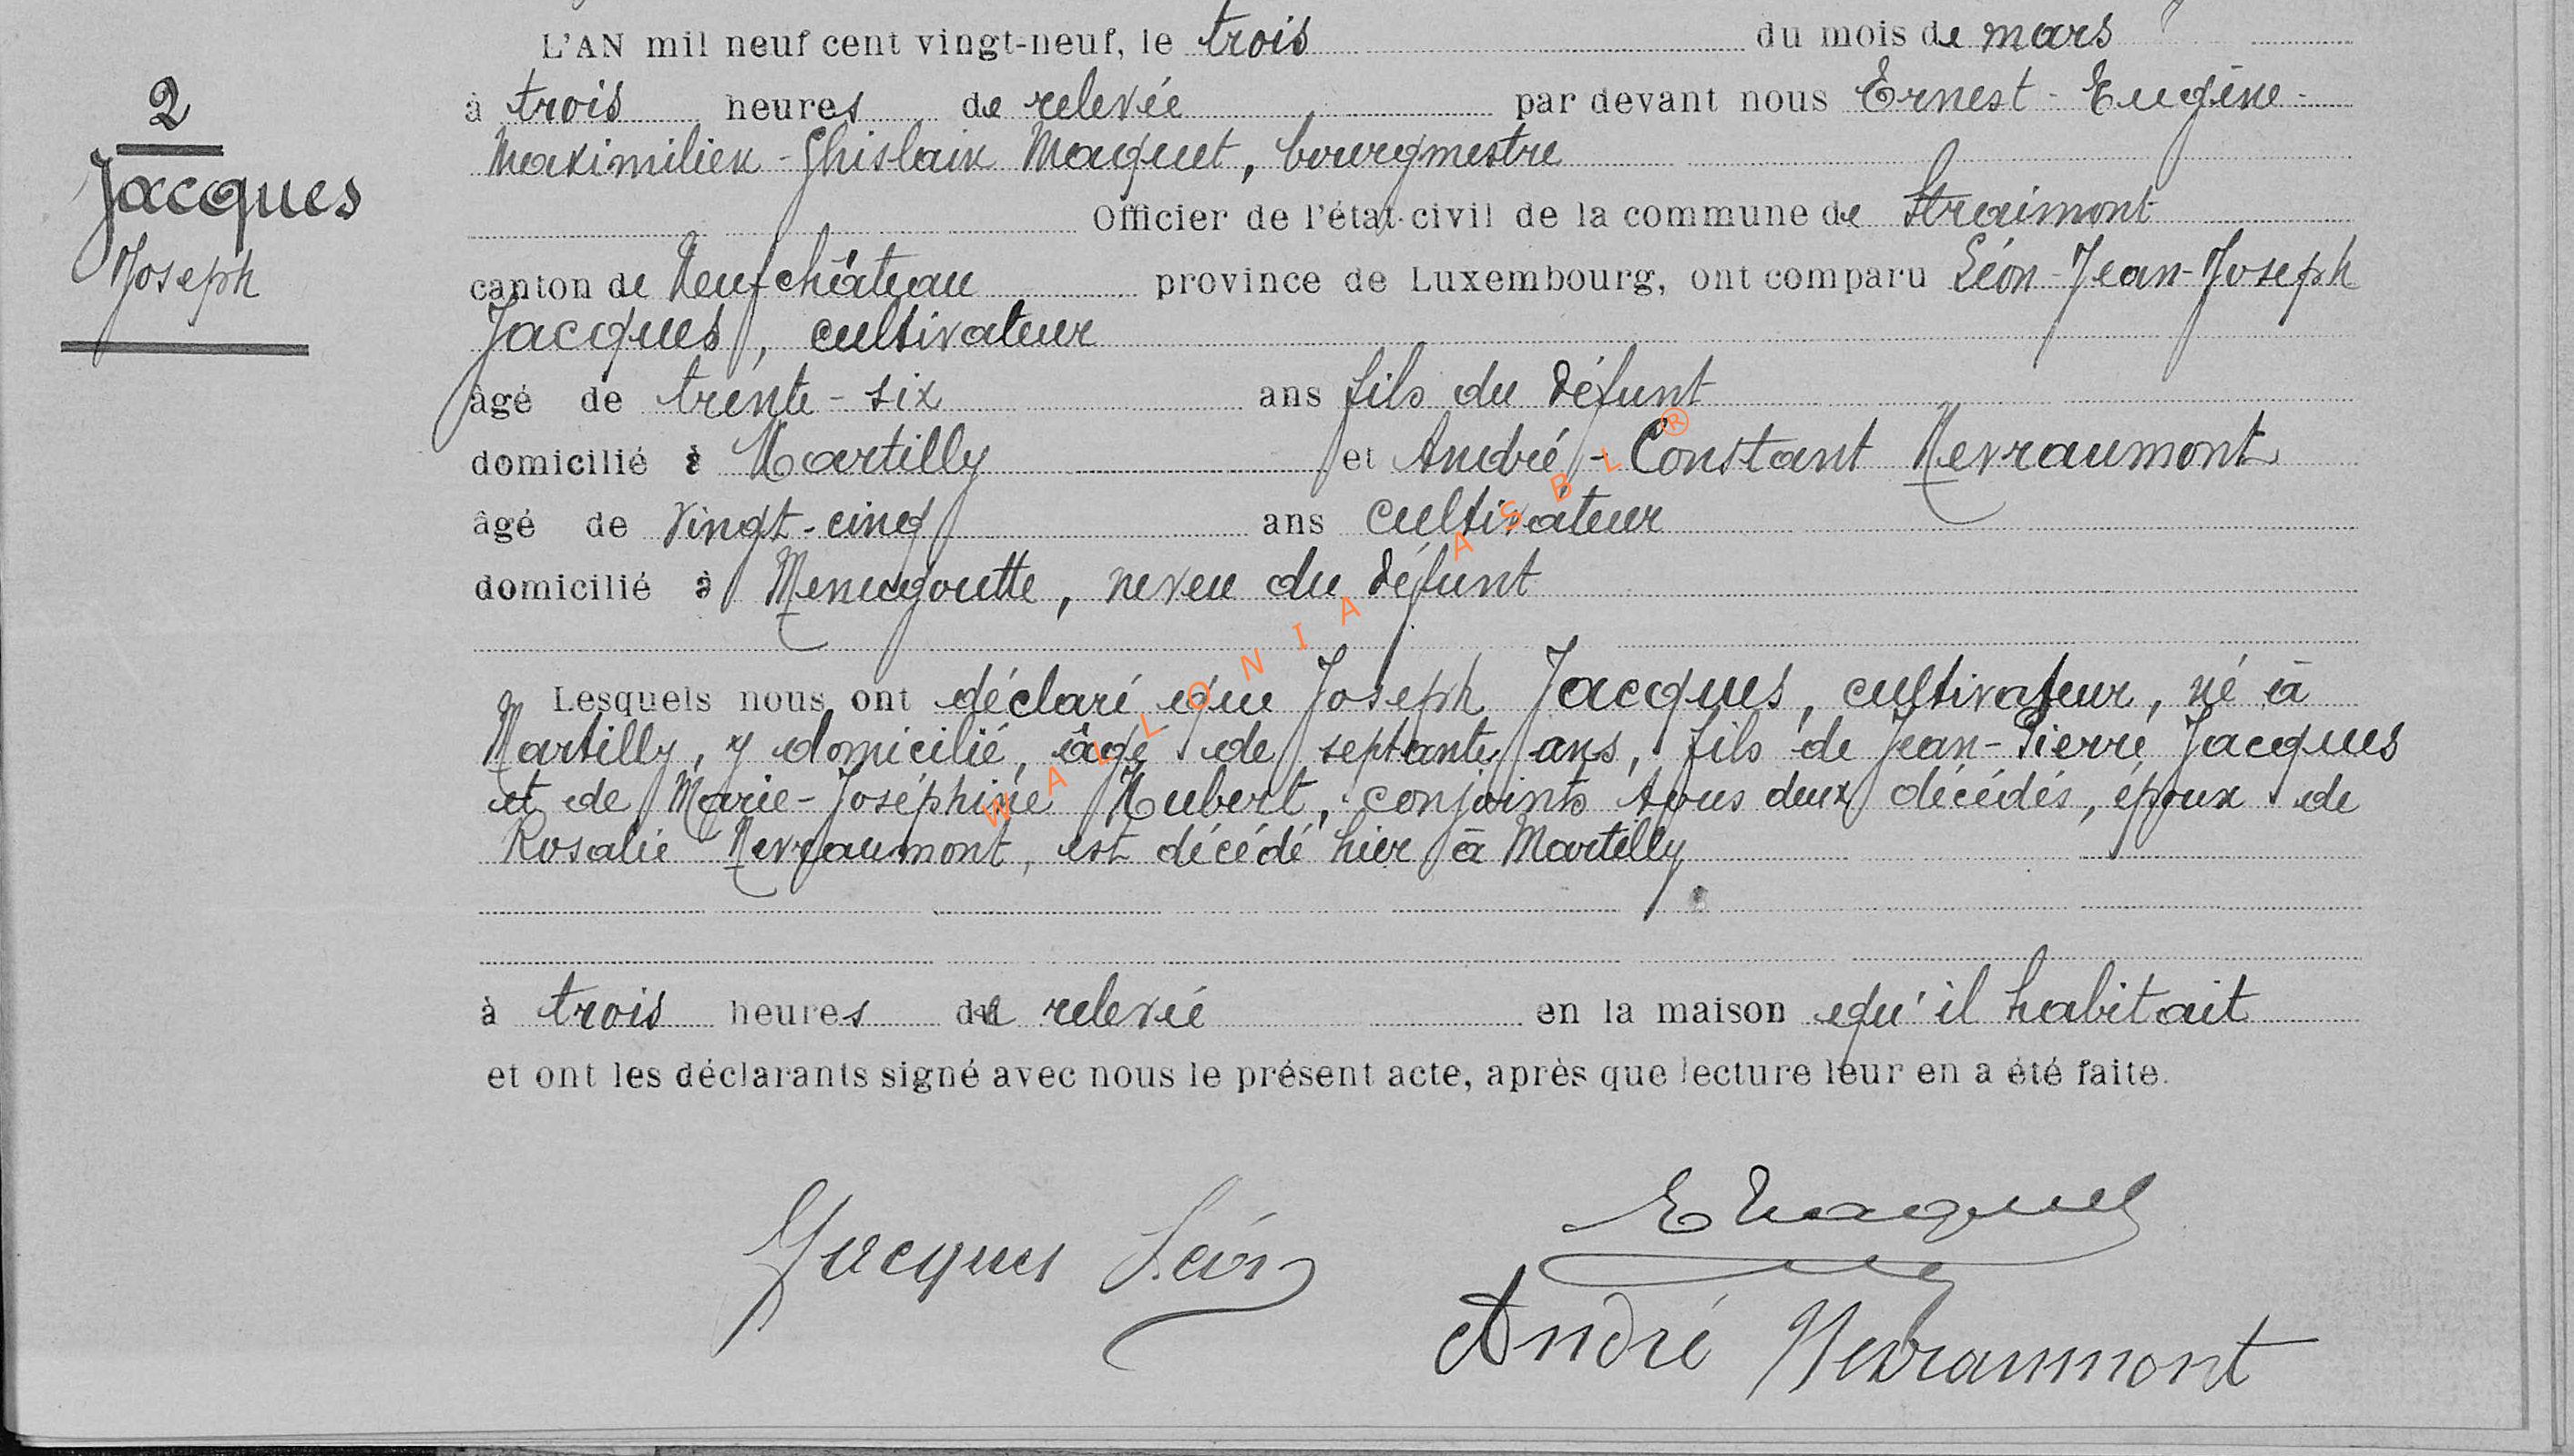 L'AN mil neuf cent vingt-neuf, le trois du mois de mars
2
à trois heures de relevée par devant nous Ernest-Eugène-
Maximilien-Ghislain Maquet, bourgmestre
Jacques
Officier de l'état civil de la commune de Straimont
Joseph
canton de Neufchâteau province de Luxembourg, ont comparu Léon-Jean-Joseph
Jacques, cultivateur
âgé de trente-six ans fils du défunt
domicilié à Martilly et André-Constant Nevraumont
âgé de vingt-cinq ans cultivateur
domicilié à Menugoutte, neveu du défunt
Lesquels nous ont déclaré que Joseph Jacques, cultivateur, né à
Martilly, y domicilié, âgé de septante ans, fils de Jean-Pierre Jacques
et de Marie-Joséphine Hubert, conjoints tous deux décédés, époux de
Rosalie Nevraumont, est décédé hier à Martilly
à trois heures de relevée en la maison qu'il habitait
et ont les déclarants signé avec nous le présent acte, après que lecture leur en a été faite.
E Maquet
Jacques Léon
André Nevraumont
WALLONIA ASBL ®